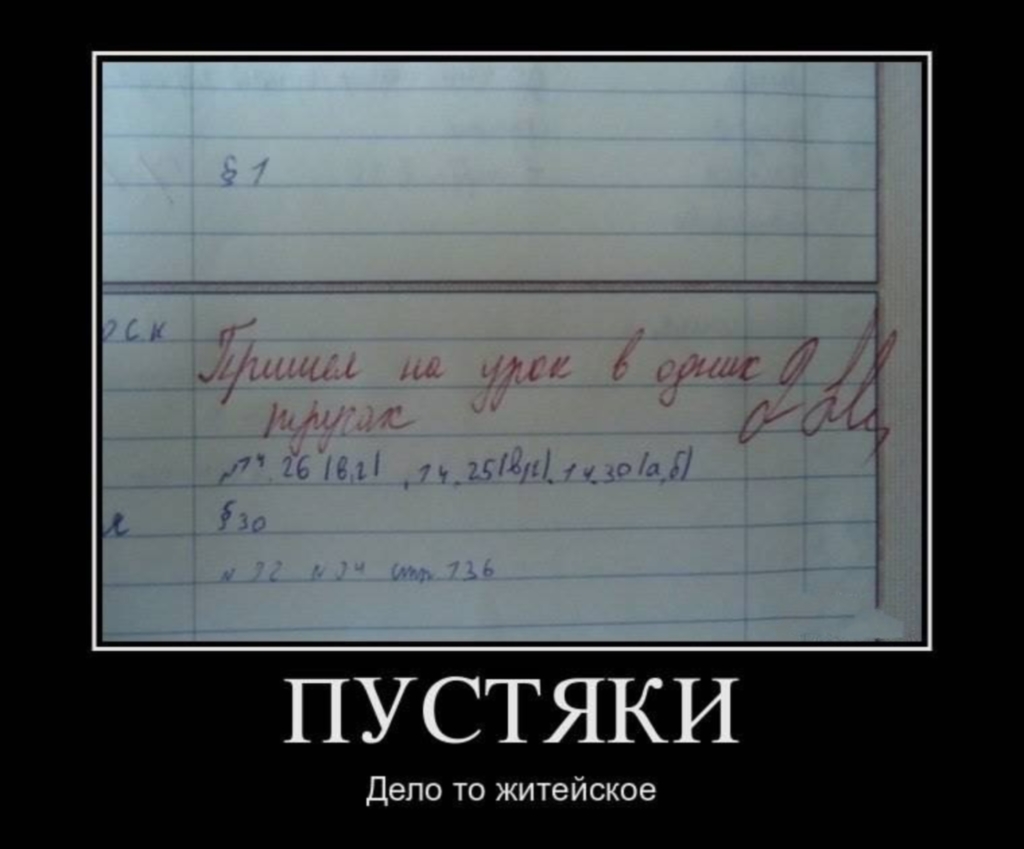 § 1
о с. к
Пришел на урок в одних
трусах
№14. 26 (в,г) , 14. 25(в,г). 14.30(а,б)
я
§ 30
№ 32 № 34 стр. 136
ПУСТЯКИ
Дело то житейское